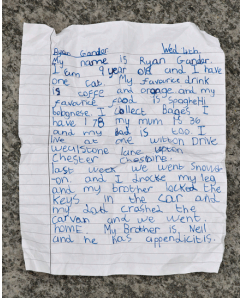 Ryan Gander Wed 4th
My name is Ryan Gander.
I am 9 year old and I have
one cat. My favourite drink
is coffe and orange and my
favource food is spaghetti
bolognese I collect Bages I
have 178 my mum is 36
and my Dad is too I
live at one witton Drive
wealstone lane upton
Chester Cheshire.
last week we went snowi
on and I broke my leg
and my brother locked the
keys in the car and
my dad crashed the
carvan and we went
HOME. My Brother is Neil
and he has appendicitis.